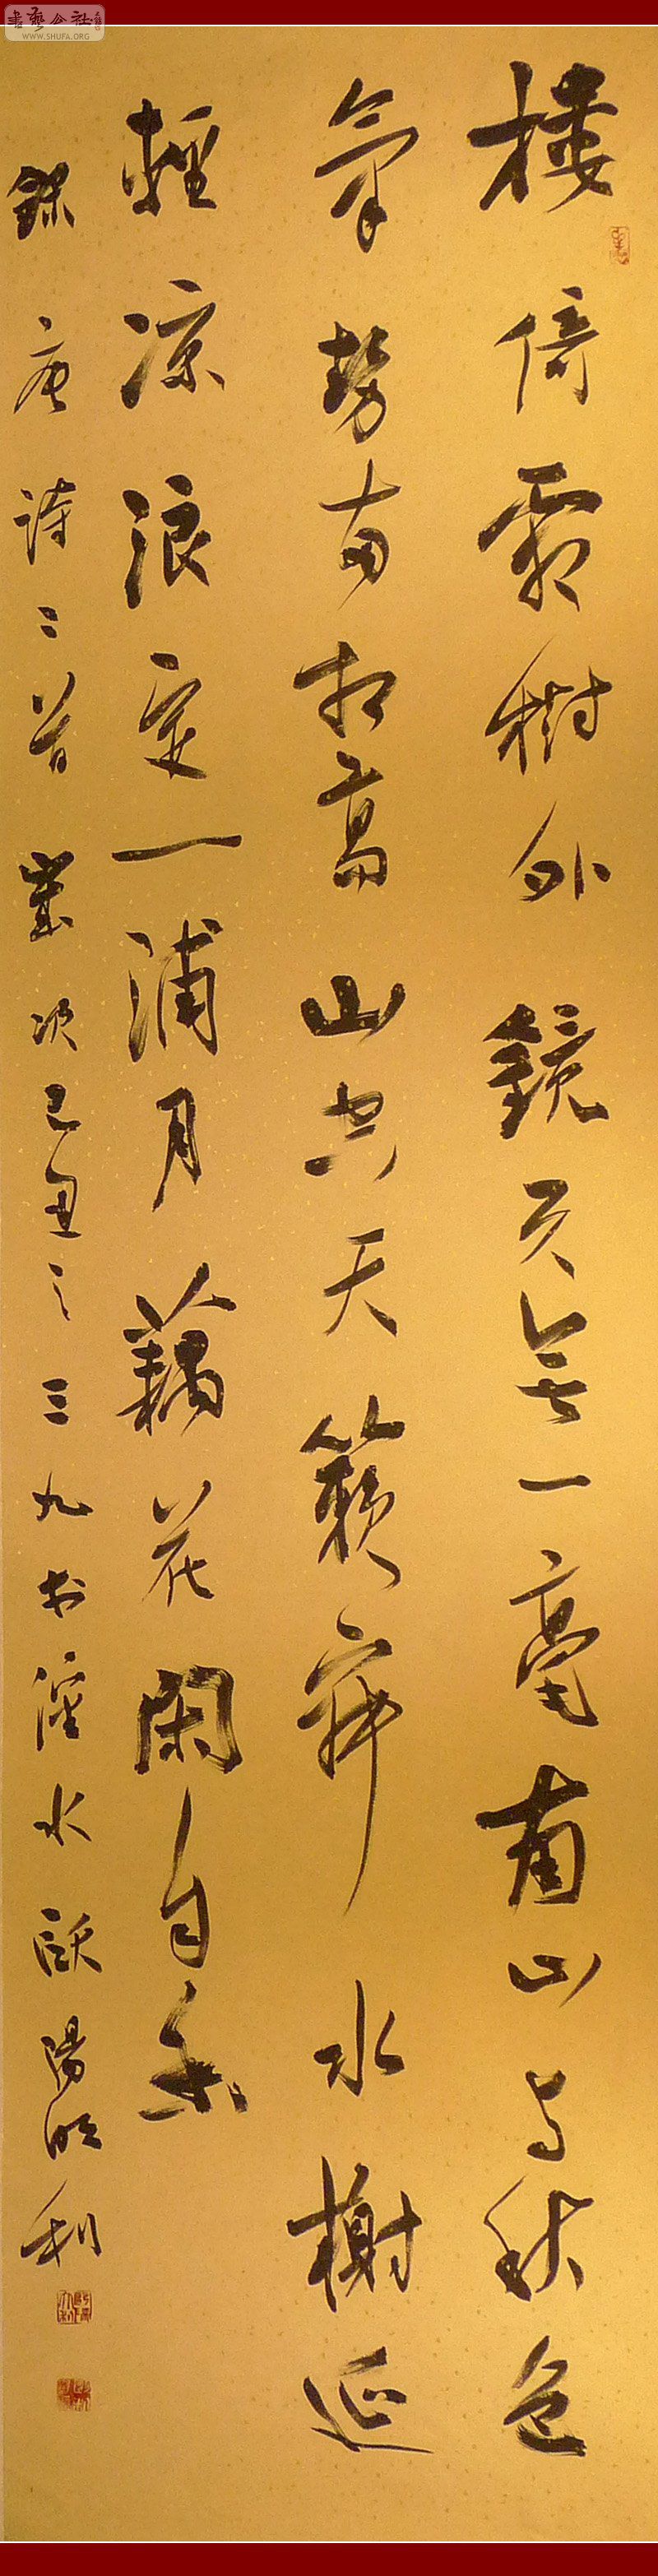 樓倚霜樹外鏡天無一毫南山與秋色
氣勢兩相高山空天籟寂水榭延
輕涼浪定一浦月藕花閑自香
錄唐詩二首歲次己丑之三九於滘水歐陽順利
書藝公社
WWW.SHUFA.ORG